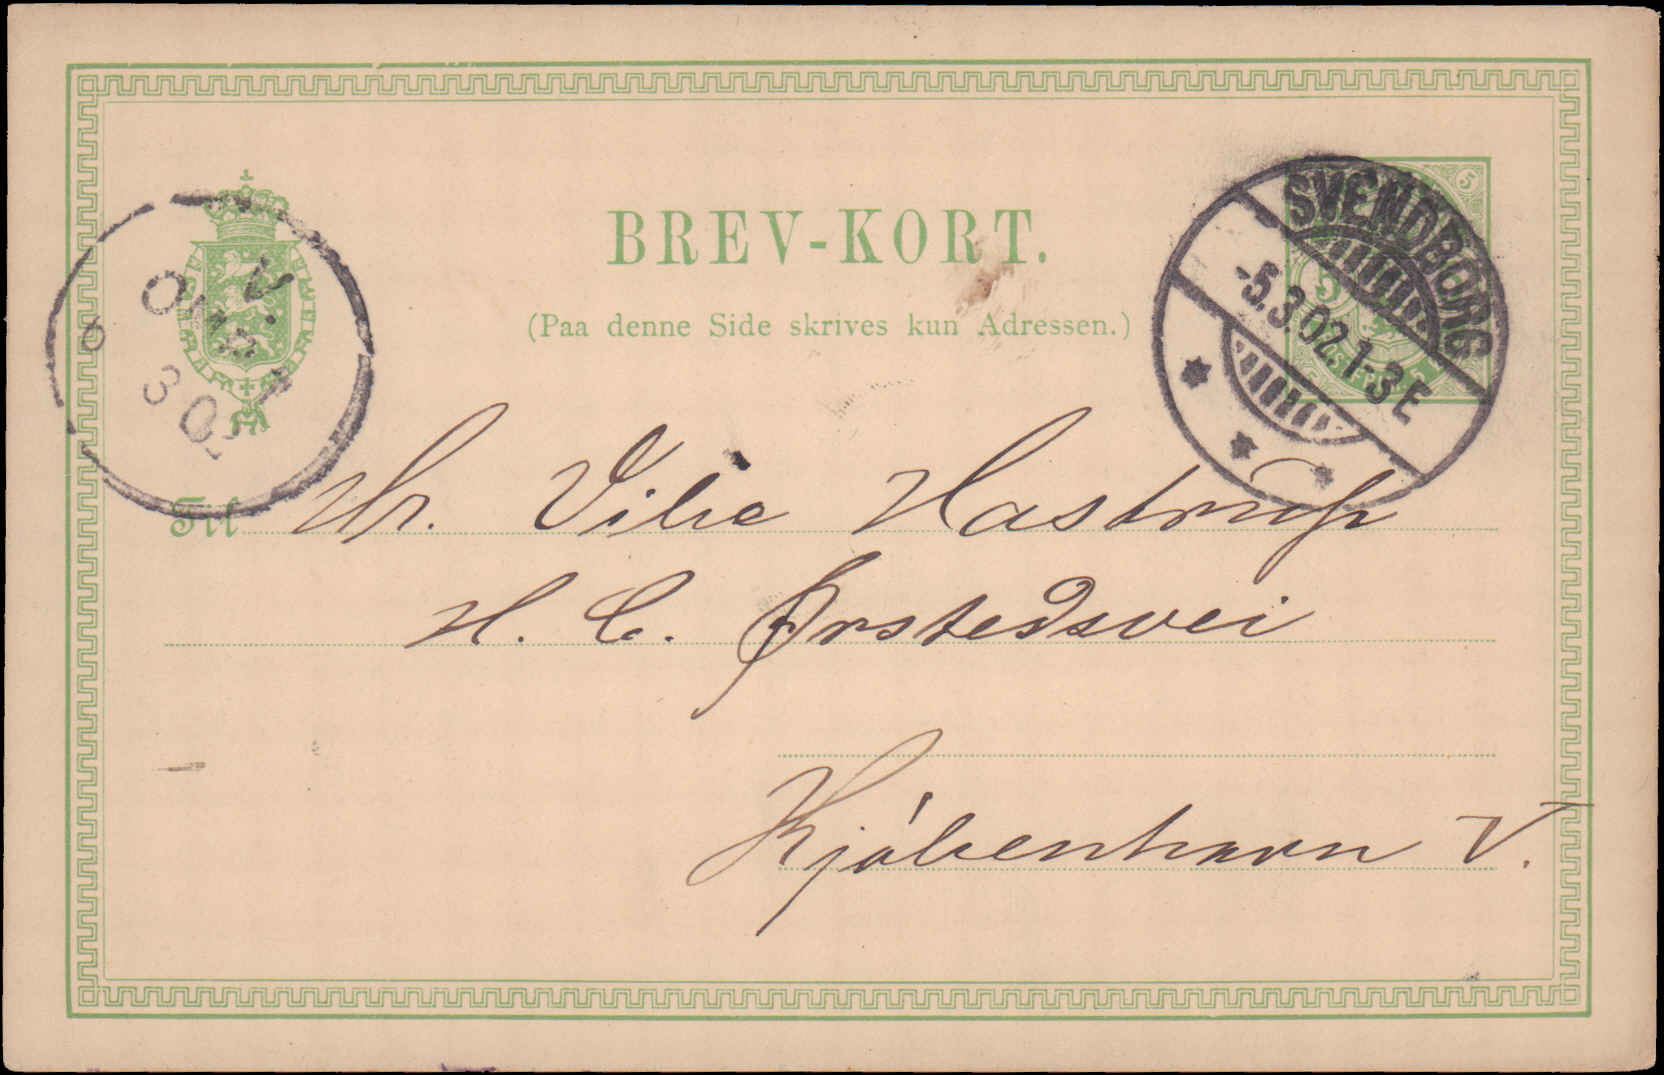 BREV-KORT.
(Paa denne Side skrives kun Adressen.)
SVENDBORG
-5.3.02.1-3E
5
V.
OMB. 4
6
3 02
Til Hr. Vibe Hastrup
H. C. Ørstedsvei
Kjøbenhavn V.